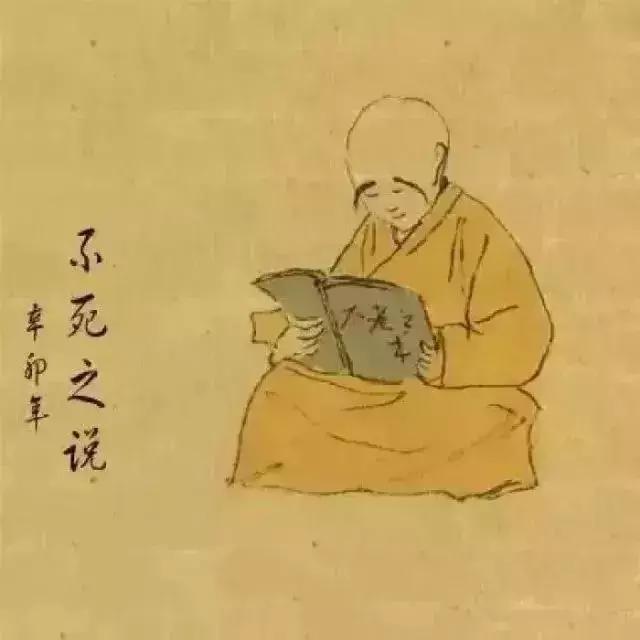 不死之说
辛卯年
不老之